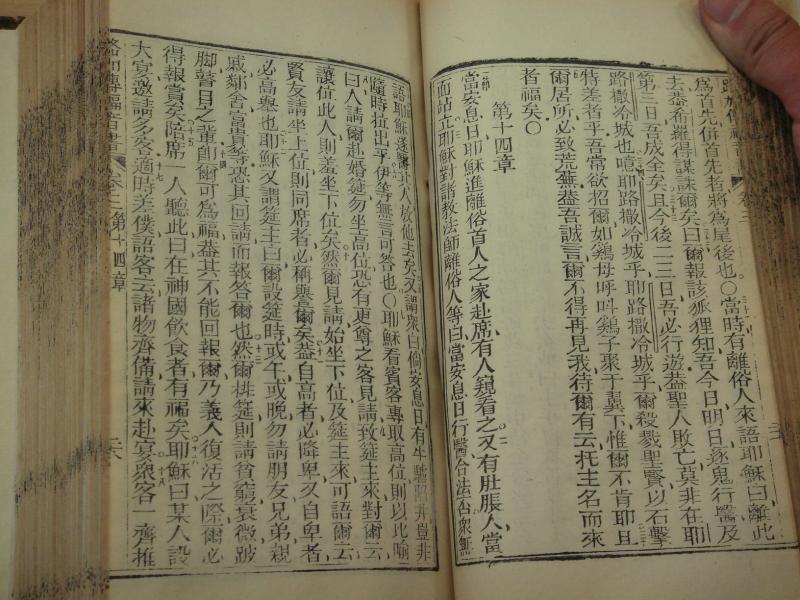 為首先併首先者將為尾後也〇當時有離俗人來語耶穌曰離此
去恭希羅得謀誅爾矣曰爾報該狐狸知吾今日明日逐鬼行醫及
第三日吾成全矣且今後二三日吾必行遊蓋聖人敗亡莫非在耶
路撒冷城也噫耶路撒冷城乎耶路撒冷城乎爾殺戮聖賢以石擊
特差者乎吾常欲招爾如鷄母呼叫鷄子聚于翼下惟爾不肯耶且
爾居所必致荒蕪蓋吾誠言爾不得再見我待爾有云托主名而來
者福矣〇
第十四章
當安息日耶穌進離俗首人之家赴席有人窺看之又有肚脹人當
面站立耶穌對諸教法師離俗人等曰當安息日行醫合法否衆無
語耶穌遂醫其人放他去矣又謂衆曰倘安息日有牛驢陷井豈非
隨時拉出乎伊等無言可答也〇耶穌看賓客專取高位則以比喻
曰人請爾赴婚筵勿坐高位恐有更尊之客見請致筵主來對爾云
讓位此人則羞坐下位矣然爾見請始坐下位及筵主來可語爾云
賢友請坐上位則同席者必稱譽爾矣蓋自高者必降卑又自卑者
必高舉也耶穌又謂筵主曰爾設筵時或午或晚勿請朋友兄弟親
戚鄰舍富貴等恐其回請而報答爾也然爾排筵則請貧窮衰微跛
脚瞽目之輩卽爾可為福蓋其不能回報爾乃義人復活之際爾必
得報賞矣陪席一人聽此曰在神國飲食者有福矣耶穌曰某人設
大宴邀請多客適時差僕語客云諸物齊備請來赴宴衆客一齊推
路加傳福音書 卷三第十四章